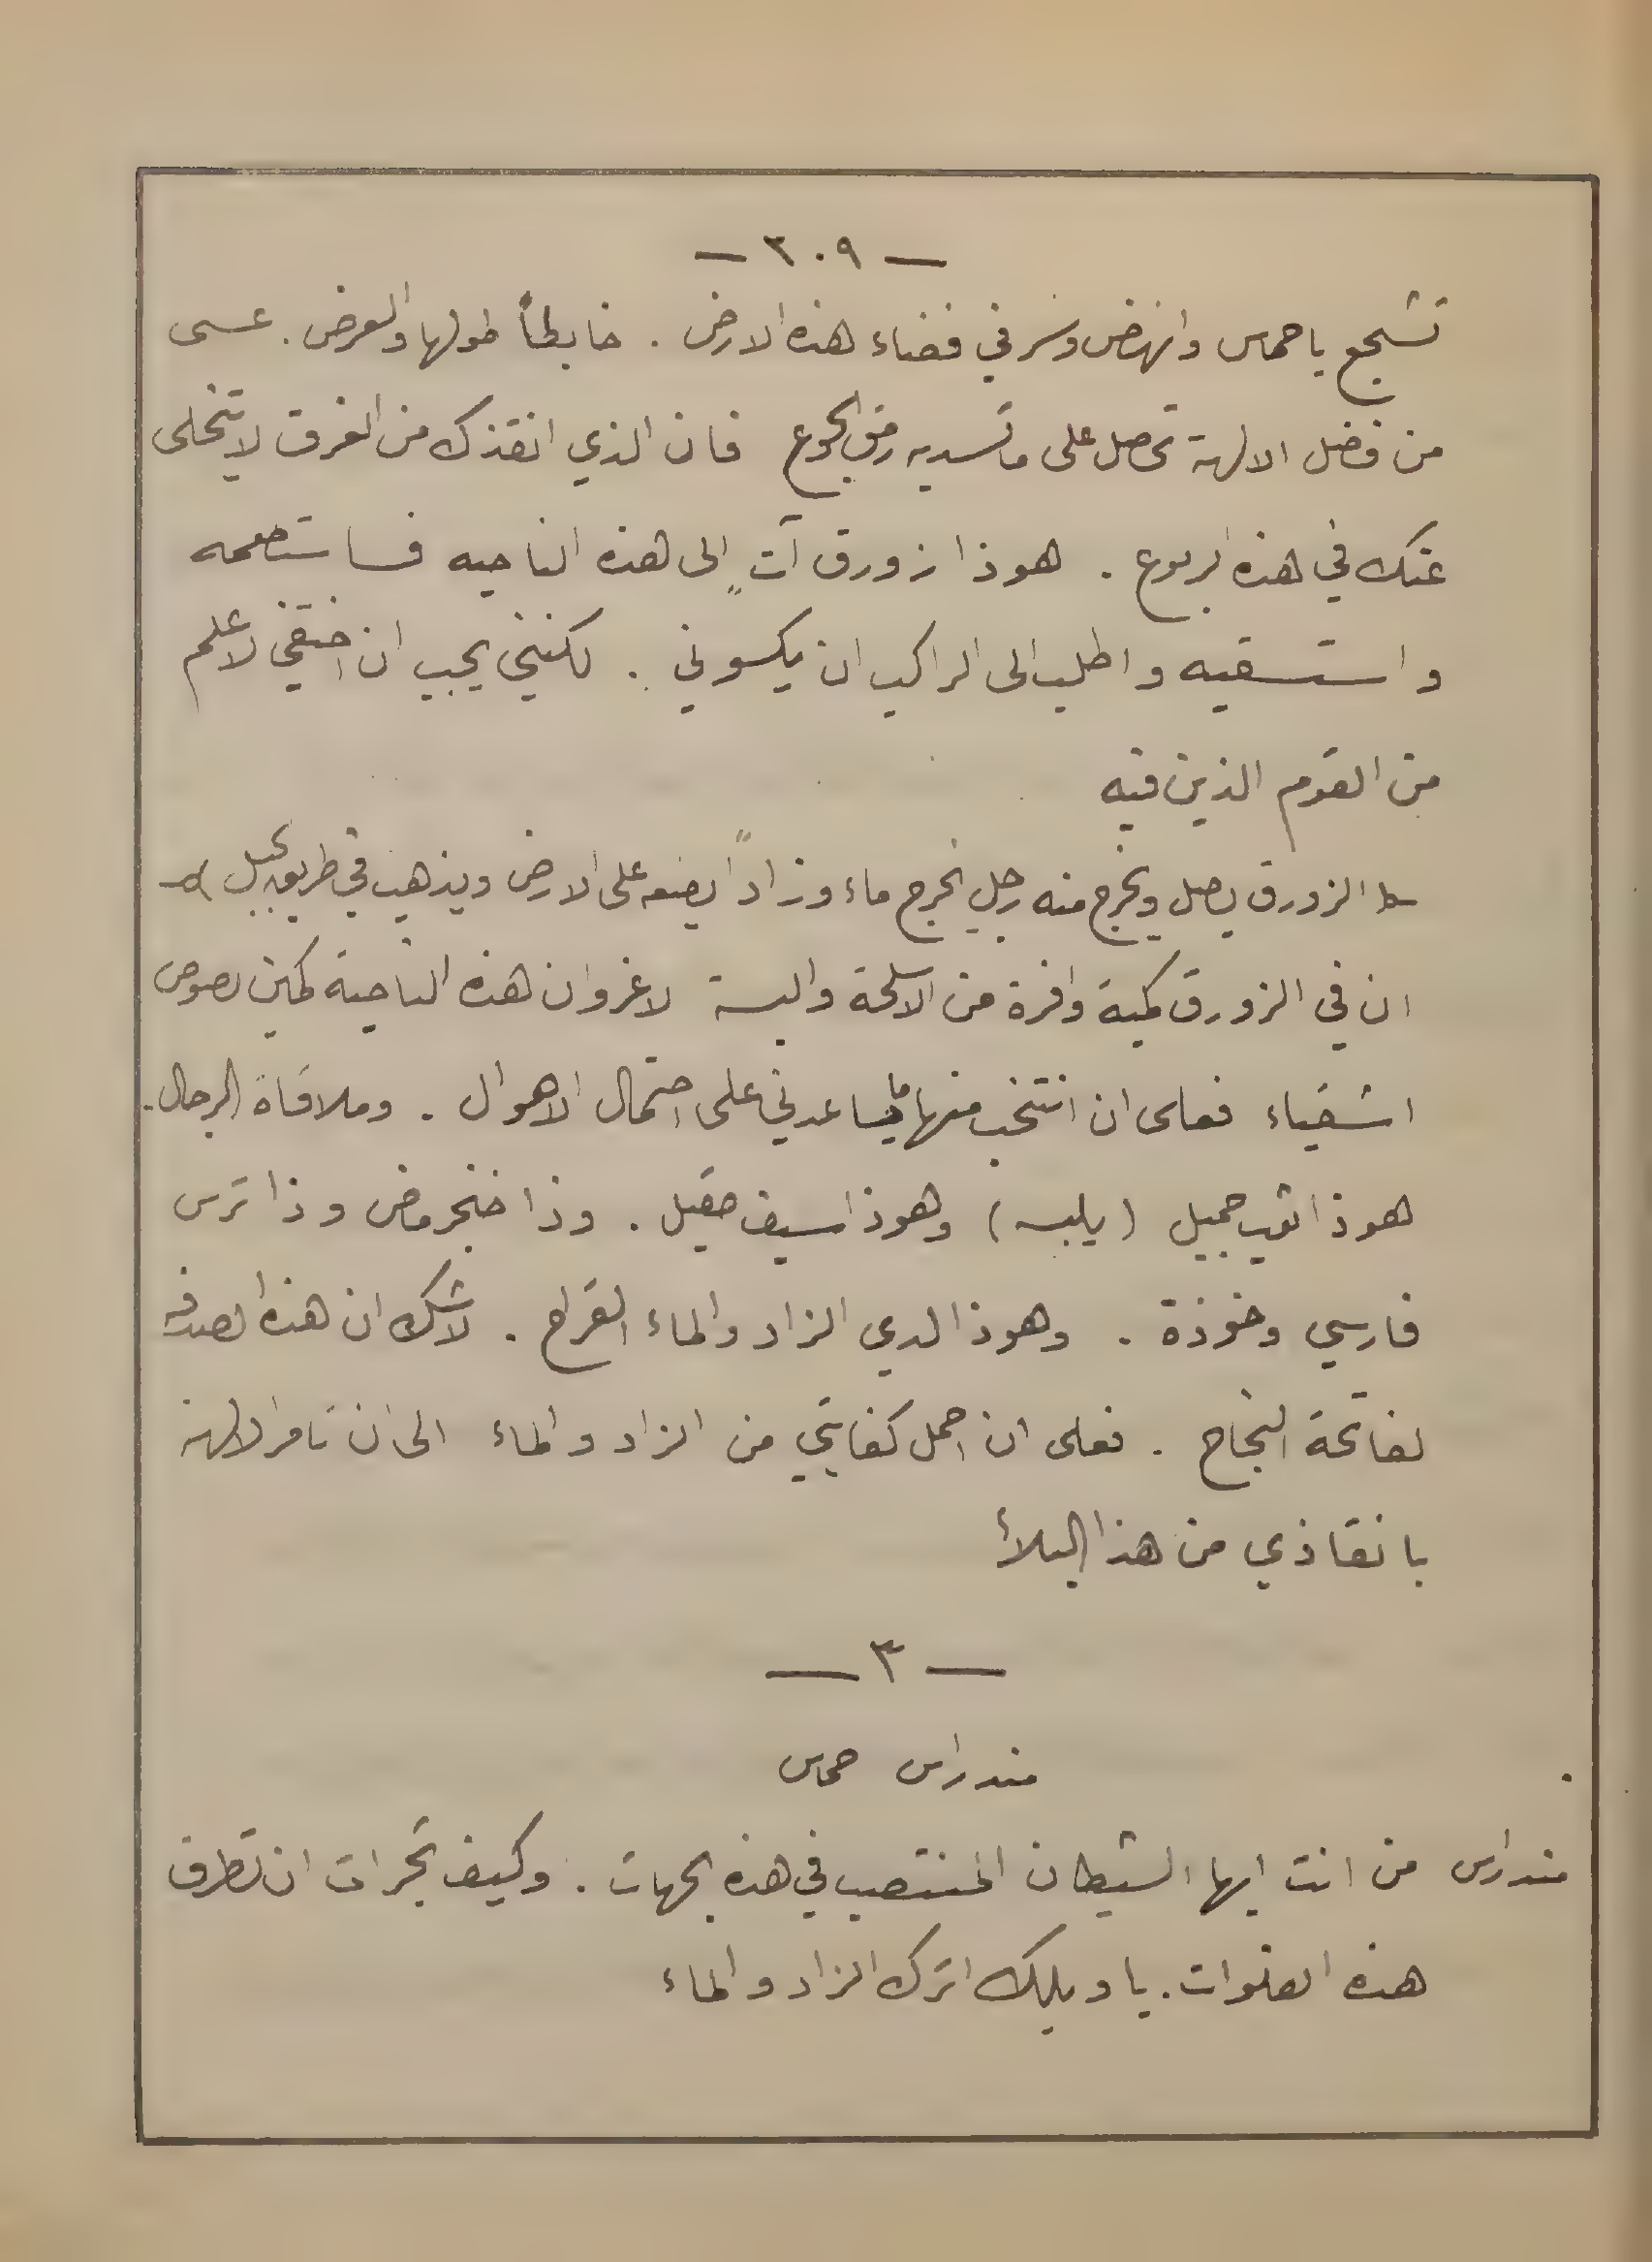 — ٣٠٩ —
تشجع يا حماس وانهض وسر في فضاء هذه الارض . خابطاً طولها والعرض . عسى
من فضل الالهة تحصل على ما تسد به رمق الجوع فان الذي انقذك من الغرق لا يتخلى
عنك في هذه الربوع . هوذا زورق آتٍ الى هذه الناحيه فساستطعمه
واستسقيه واطلب الى الراكب ان يكسوني . لكنني يجب ان اختفي لاعلم
من القوم الذين فيه
الزورق يصل ويخرج منه رجل يخرج ماء وزاداً يضعه على الارض ويذهب في طريق الجبل
ان في الزورق كمية وافرة من الاسلحة والبسة لا غرو ان هذه الناحية كمين لصوص
اشقياء فعلى ان انتخب منها ما يساعدني على احتمال الاهوال . وملاقاة الرجال .
هوذا ثوب جميل (يلبسه) وهوذا سيف صقيل . وذا خنجر ماض وذا ترس
فارسي وخوذة . وهوذا لدي الزاد والماء القراح . لا شك ان هذه الصدفه
لفاتحة النجاح . فعلى ان احمل كفايتي من الزاد والماء الى ان تامر الالهة
بانقاذي من هذا البلأ
— ٣ —
مندراس حماس
مندراس من انت ايها الشيطان المنتصب في هذه الجهات . وكيف تجرات ان تطرق
هذه الفلوات . يا ويلك اترك الزاد والماء